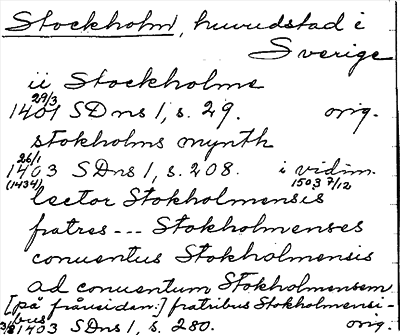 Stockholm, huvudstad i
Sverige
ii Stockholme
29/3
1401 SDns 1, s. 29. orig.
stokholms mynth
26/1
1403 SDns 1, s. 208. i vidim.
(1434) 1503 7/12
lector Stokholmensis
fratres --- Stokholmenses
conuentus Stokholmensis
ad conuentum Stokholmensem
[på frånsidan:] fratribus Stokholmensi-
bus
1403 SDns 1, s. 280. orig.